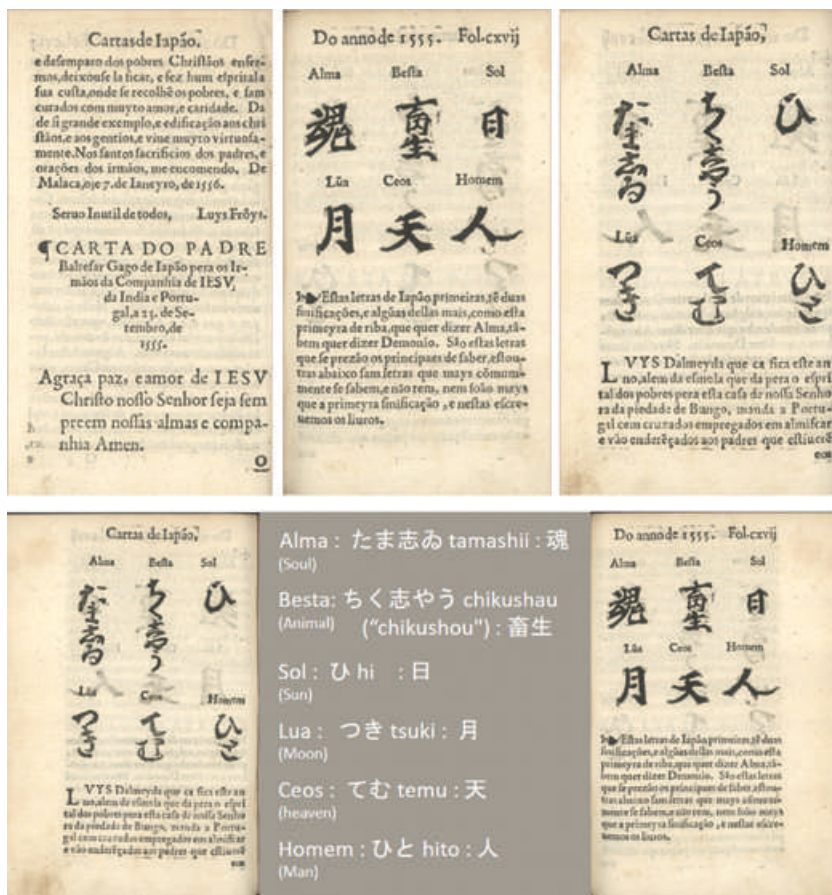 Cartas de Iapão.
e desemparo dos pobres Christãos enfer-
mos, deixouse la ficar, e fez hum esprital a
sua custa, onde se recolhẽ os pobres, e sam
curados com muyto amor, e caridade. Da
de si grande exemplo, e edificação aos chri
stãos, e aos gentios, e viue muyto virtuosa-
mente. Nos santos sacrificios dos padres, e
orações dos irmãos, me encomendo. De
Malaca, oje 7. de Ianeyro, de 1556.
Seruo Inutil de todos, Luys Frôys.
¶ CARTA DO PADRE
Baltesar Gago de Iapão pera os Ir-
mãos da Companhia de IESV,
da India e Portu-
gal, a 23. de Se-
tembro, de
1555.
A graça paz, e amor de IESV
Christo nosso Senhor seja sem
pre em nossas almas e compa-
nhia Amen.
O
Do anno de 1555. Fol. cxvij
Alma Besta Sol
魂 畜生 日
Lũa Ceos Homem
月 天 人
Estas letras de Iapão primeiras, tẽ duas
sinificações, e algũas dellas mais, como esta
primeyra de riba, que quer dizer Alma, tã-
bem quer dizer Demonio. São estas letras
que se prezão os principaes de saber, estou-
tras abaixo sam letras que mays cõmum-
mente se sabem, e não tem, nem soão mays
que a primeyra sinificação, e nestas escre-
uemos os liuros.
Cartas de Iapão,
Alma Besta Sol
たま志ゐ ちく志やう ひ
Lũa Ceos Homem
つき てむ ひと
LVYS Dalmeyda que ca fica este an
no, alem da esmola que da pera o espri
tal dos pobres pera esta casa de nossa Senho
ra da piedade de Bungo, manda a Portu-
gal cem cruzados empregados em almiscar
e vão enderẽçados aos padres que estiuerẽ
em
Cartas de Iapão,
Alma Besta Sol
たま志ゐ ちく志やう ひ
Lũa Ceos Homem
つき てむ ひと
LVYS Dalmeyda que ca fica este an
no, alem da esmola que da pera o espri
tal dos pobres pera esta casa de nossa Senho
ra da piedade de Bungo, manda a Portu-
gal cem cruzados empregados em almiscar
e vão enderẽçados aos padres que estiuerẽ
em
Alma : たま志ゐ tamashii : 魂
(Soul)
Besta: ちく志やう chikushau
(Animal) ("chikushou") : 畜生
Sol : ひ hi : 日
(Sun)
Lua : つき tsuki : 月
(Moon)
Ceos : てむ temu : 天
(heaven)
Homem : ひと hito : 人
(Man)
Do anno de 1555. Fol. cxvij
Alma Besta Sol
魂 畜生 日
Lũa Ceos Homem
月 天 人
Estas letras de Iapão primeiras, tẽ duas
sinificações, e algũas dellas mais, como esta
primeyra de riba, que quer dizer Alma, tã-
bem quer dizer Demonio. São estas letras
que se prezão os principaes de saber, estou-
tras abaixo sam letras que mays cõmum-
mente se sabem, e não tem, nem soão mays
que a primeyra sinificação, e nestas escre-
uemos os liuros.